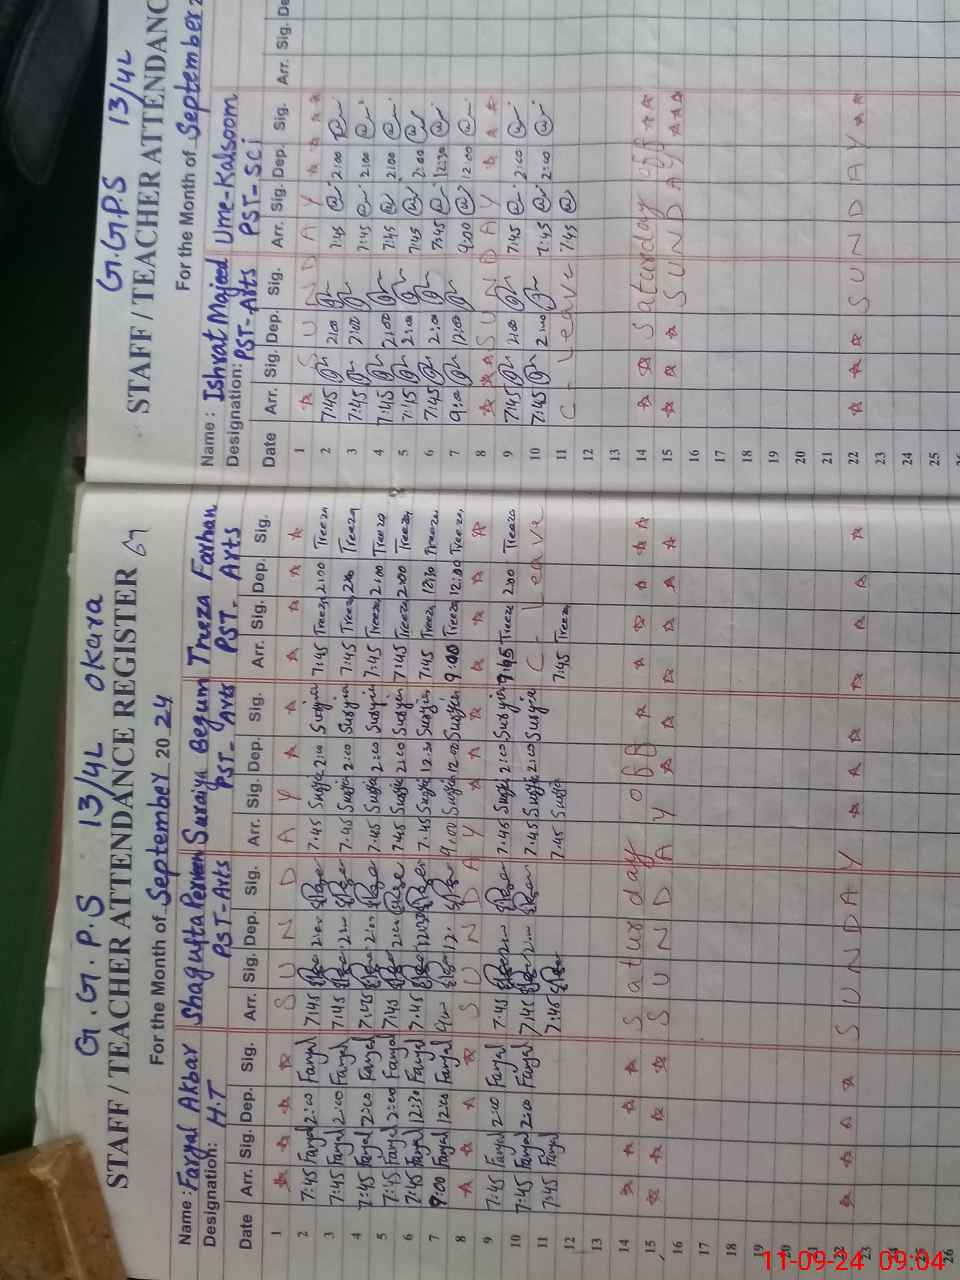 G.G.P.S 13/4L Okara
STAFF / TEACHER ATTENDANCE REGISTER 67
For the Month of September 2024
Name : Faryal Akbar Shagufta Perveen Suraiya Begum Theza Farhan
Designation: H.T PST-Arts PST-Arts PST-Arts
Date Arr. Sig. Dep. Sig. Arr. Sig. Dep. Sig. Arr. Sig. Dep. Sig. Arr. Sig. Dep. Sig.
1 SUNDAY
2 7:45 Faryal 2:00 Faryal 7:45 2:00 7:45 2:00 7:45 Treeza 2:00 Treeza
3 7:45 Faryal 2:00 Faryal 7:45 7:45 2:00 7:45 Treeza Treeza
4 7:45 Faryal 2:00 Faryal 7:45 2:00 7:45 2:00 7:45 Treeza 2:00 Treeza
5 7:45 Faryal 2:00 Faryal 7:45 2:00 7:45 2:00 7:45 Treeza 2:00 Treeza
6 7:45 Faryal 12:30 Faryal 7:45 12:30 7:45 12:30 7:45 Treeza 12:30 Treeza
7 9:00 Faryal 12:00 Faryal 9:00 12:00 9:00 Treeza 12:00 Treeza
8 SUNDAY
9 7:45 Faryal 2:00 Faryal 7:45 7:45 2:00 7:45 Treeza 2:00 Treeza
10 7:45 Faryal 2:00 Faryal 7:45 7:45 2:00 C - Leave
11 7:45 Faryal 7:45 7:45 7:45 Treeza
12
13
14 Saturday off
15 SUNDAY
16
17
18
19
20
21
22 SUNDAY
23
24
25
26
G.G.P.S 13/4L
STAFF / TEACHER ATTENDANC
For the Month of September
Name : Ishrat Majeed Ume-Kalsoom
Designation: PST-Arts PST-Sci
Date Arr. Sig. Dep. Sig. Arr. Sig. Dep. Sig. Arr. Sig. De
1 SUNDAY
2 7:45 2:00 7:45 2:00
3 7:45 7:45 2:00
4 7:45 2:00 7:45 2:00
5 7:45 2:00 7:45 2:00
6 7:45 2:00 7:45 12:30
7 9:00 12:00 9:00 12:00
8 SUNDAY
9 7:45 2:00 7:45 2:00
10 7:45 2:00 7:45 2:00
11 C - Leave 7:45
12
13
14 Saturday off
15 SUNDAY
16
17
18
19
20
21
22 SUNDAY
23
24
25
11-09-24 09:04